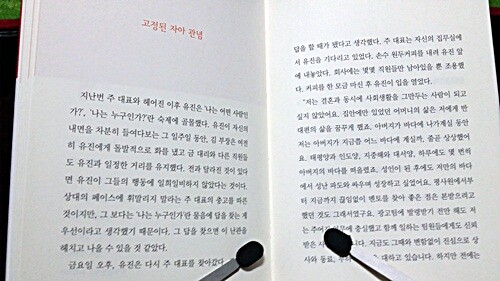 고정된 자아 관념
지난번 주 대표와 헤어진 이후 유진은 '나는 어떤 사람인
가?', '나는 누구인가?'란 숙제에 골몰했다. 유진이 자신의
내면을 차분히 들여다보는 그 일주일 동안, 김 부장은 여전
히 유진에게 돌발적으로 화를 냈고 금 대리와 다른 직원들
도 유진과 일정한 거리를 유지했다. 전과 달라진 것이 있다
면 유진이 그들의 행동에 일희일비하지 않았다는 것이다.
상대의 페이스에 휘말리지 말라는 주 대표의 충고를 따른
것이지만, 그 보다는 '나는 누구인가'란 물음에 답을 찾는 게
우선이라고 생각했기 때문이다. 그 답을 찾으면 이 난관을
헤치고 나올 수 있을 것 같았다.
금요일 오후, 유진은 다시 주 대표를 찾아갔다.
답을 할 때가 됐다고 생각했다. 주 대표는 자신의 집무실에
서 유진을 기다리고 있었다. 손수 원두커피를 내려 유진 앞
에 내놓았다. 회사에는 몇몇 직원들만 남아있을 뿐 조용했
다. 커피를 한 모금 마신 후 유진이 입을 열었다.
"저는 결혼과 동시에 사회생활을 그만두는 사람이 되고
싶지 않았어요. 집안에만 있었던 어머니의 삶은 저에게 반
대편의 삶을 꿈꾸게 했죠. 아버지가 바다에 나가계실 동안
저는 아버지가 지금쯤 어느 바다에 계실까, 줄곧 상상했어
요. 태평양과 인도양, 지중해와 대서양, 하루에도 몇 번씩
아버지의 바다를 떠올렸죠. 성인이 된 후에도 저만의 바다
에서 성난 파도와 싸우며 성장하고 싶었어요. 평사원에서부
터 지금까지 끊임없이 멘토를 찾아 좋은 점은 본받으려고
했던 것도 그래서였구요. 광고팀에 발령받기 전만 해도 저
는 주어진 에 충실했고 함께 일하는 팀원들에게도 신뢰
받은 사 니다. 지금도 그때와 변함없이 진심으로 상
사와 동료, 대하고 있습니다. 하지만 전에는